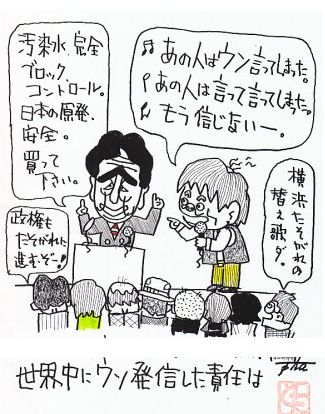 汚染水、完全
ブロック、
コントロール。
日本の原発、
安全。
買って
下さい。
あの人はウン言ってしまった。
あの人は言って言ってしまった。
もう信じないー。
横浜たそがれの
替え歌ダ。
政権も
たそがれに
進むぞー!
世界中にウソ発信した責任は